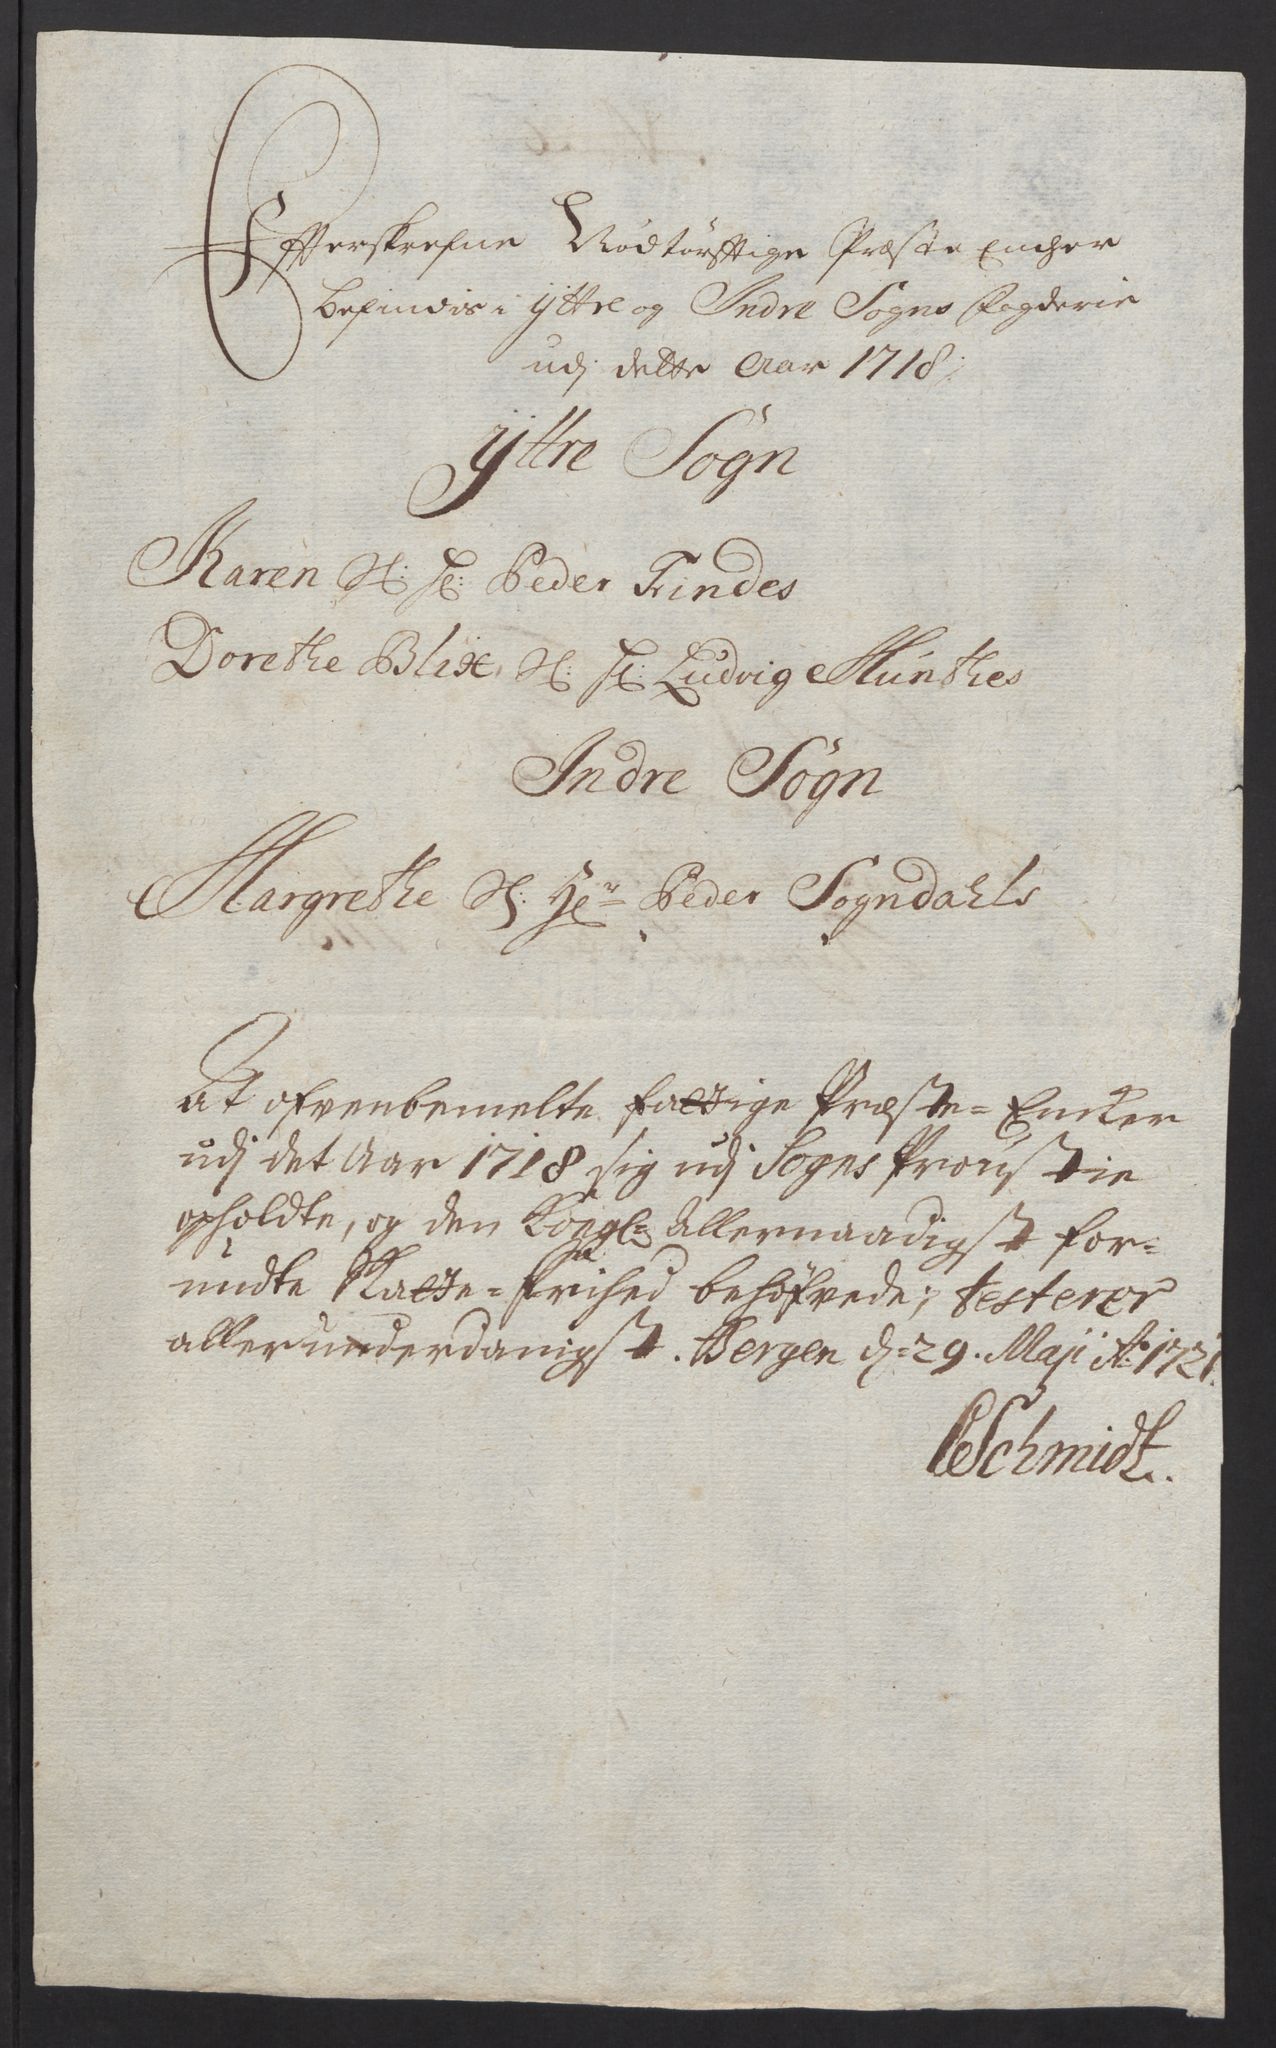 Effterskrefne Nödtörfftige Præste Encher
befindis i ÿttre og Indre Sogns fogderie
udj dette Aar 1718
ÿttre Sögn
Karen Sl: Hr: Peder Frindes
Dorethe Blix, Sl: Hr: Ludvig Munthes
Indre Sögn
Margrethe Sl: Hr: Peder Sogndahls
At ofvenbemelte fattige Præste-Encker
udj det Aar 1718 sig udj Sogns Proustie
opholdte, og den Kongl: Allernaadigst for-
undte Skatte-frihed behöfvede; testerer
allerunderdanigst. Bergen d: 29. Maji Ao 1721.
CSchmidt.